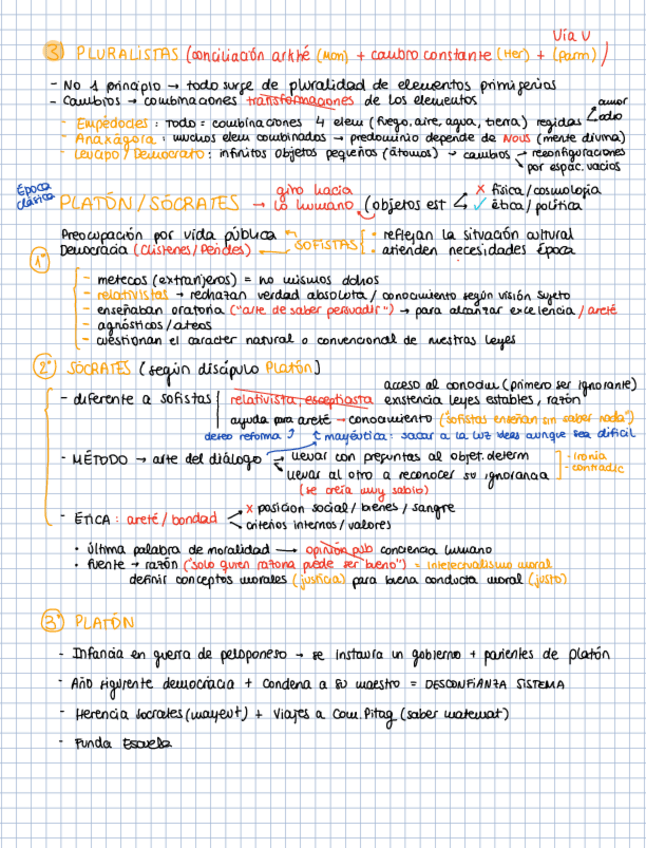 Vía V
3) PLURALISTAS (conciliación arkhé (Mon) + cambio constante (Her) + (Parm))
- No 1 principio → todo surge de pluralidad de elementos primigenios
- Cambios → combinaciones transformaciones de los elementos
- Empédocles: Todo = combinaciones 4 elem (fuego, aire, agua, tierra) regidas amor odio
- Anaxágora: muchos elem combinados → predominio depende de NOUS (mente divina)
- Leucipo / Demócrato: infinitos objetos pequeños (átomos) → cambios → reconfiguraciones
por espac. vacíos
Época clásica
PLATÓN / SÓCRATES → giro hacia lo humano (objetos est x física / cosmología
✓ ética / política
Preocupación por vida pública
Democracia (Clístenes / Pericles)
SOFISTAS
· reflejan la situación cultural
· atienden necesidades época
1º
- metecos (extranjeros) = no mismos dchos
- relativistas → rechazan verdad absoluta / conocimiento según visión sujeto
- enseñaban oratoria ("arte de saber persuadir") → para alcanzar excelencia / areté
- agnósticos / ateos
- cuestionan el caracter natural o convencional de nuestras leyes
2º SÓCRATES (según discípulo Platón)
- diferente a sofistas
acceso al conocim (primero ser ignorante)
relativista, escepticista existencia leyes estables, razón
ayuda para areté → conocimiento ("sofistas enseñan sin saber nada")
deseo reforma mayéutica: sacar a la luz ideas aunque sea difícil
- MÉTODO → arte del diálogo → llevar con preguntas al objet. determ
llevar al otro a reconocer su ignorancia
(se creía muy sabio)
- ironía
- contradic
- ÉTICA: areté / bondad x posición social / bienes / sangre
criterios internos / valores
· Última palabra de moralidad → opinión pub conciencia humano
· fuente → razón ("solo quien razona puede ser bueno") = intelectualismo moral
definir conceptos morales (justicia) para buena conducta moral (justo)
3º PLATÓN
- Infancia en guerra de peloponeso → se instaura un gobierno + parientes de platón
- Año siguiente democracia + Condena a su maestro = DESCONFIANZA SISTEMA
- Herencia Socrates (mayeut) + Viajes a Com. Pitag (saber matemat)
- Funda Escuela